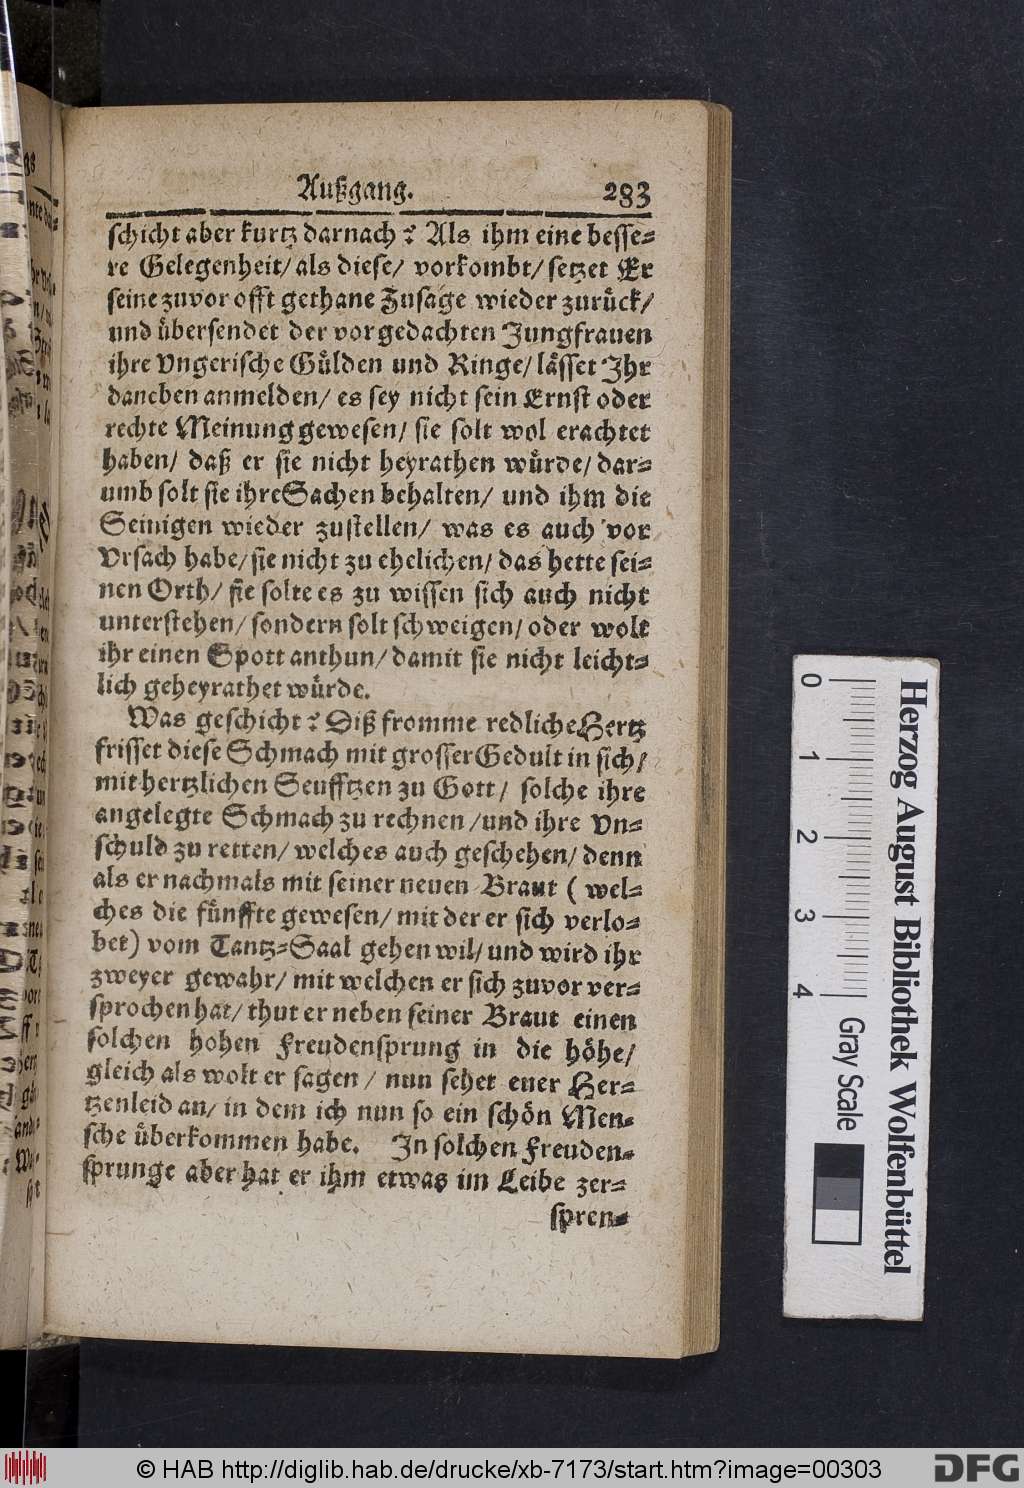 Außgang. 283
schicht aber kurtz darnach? Als ihm eine besse-
re Gelegenheit/ als diese/ vorkombt/ setzet Er
seine zuvor offt gethane Zusage wieder zurück/
und übersendet der vorgedachten Jungfrauen
ihre Vngerische Gülden und Ringe/ lässet Ihr
daneben anmelden/ es sey nicht sein Ernst oder
rechte Meinung gewesen/ sie solt wol erachtet
haben/ daß er sie nicht heyrathen würde/ dar-
umb solt sie ihre Sachen behalten/ und ihm die
Seinigen wieder zustellen/ was es auch vor
Vrsach habe/ sie nicht zu ehelichen/ das hette sei-
nen Orth/ sie solte es zu wissen sich auch nicht
unterstehen/ sondern solt schweigen/ oder wolt
ihr einen Spott anthun/ damit sie nicht leicht-
lich geheyrathet würde.
Was geschicht? Diß fromme redliche Hertz
frisset diese Schmach mit grosser Gedult in sich/
mit hertzlichen Seufftzen zu Gott/ solche ihre
angelegte Schmach zu rechnen/ und ihre Vn-
schuld zu retten/ welches auch geschehen/ denn
als er nachmals mit seiner neuen Braut ( wel-
ches die fünffte gewesen/ mit der er sich verlo-
bet) vom Tantz-Saal gehen wil/ und wird ihr
zweyer gewahr/ mit welchen er sich zuvor ver-
sprochen hat/ thut er neben seiner Braut einen
solchen hohen Freudensprung in die höhe/
gleich als wolt er sagen/ nun sehet euer Her-
tzenleid an/ in dem ich nun so ein schön Men-
sche überkommen habe. In solchen Freuden-
sprunge aber hat er ihm etwas im Leibe zer-
spren-
0 1 2 3 4
Gray Scale
Herzog August Bibliothek Wolfenbüttel
© HAB http://diglib.hab.de/drucke/xb-7173/start.htm?image=00303
DFG